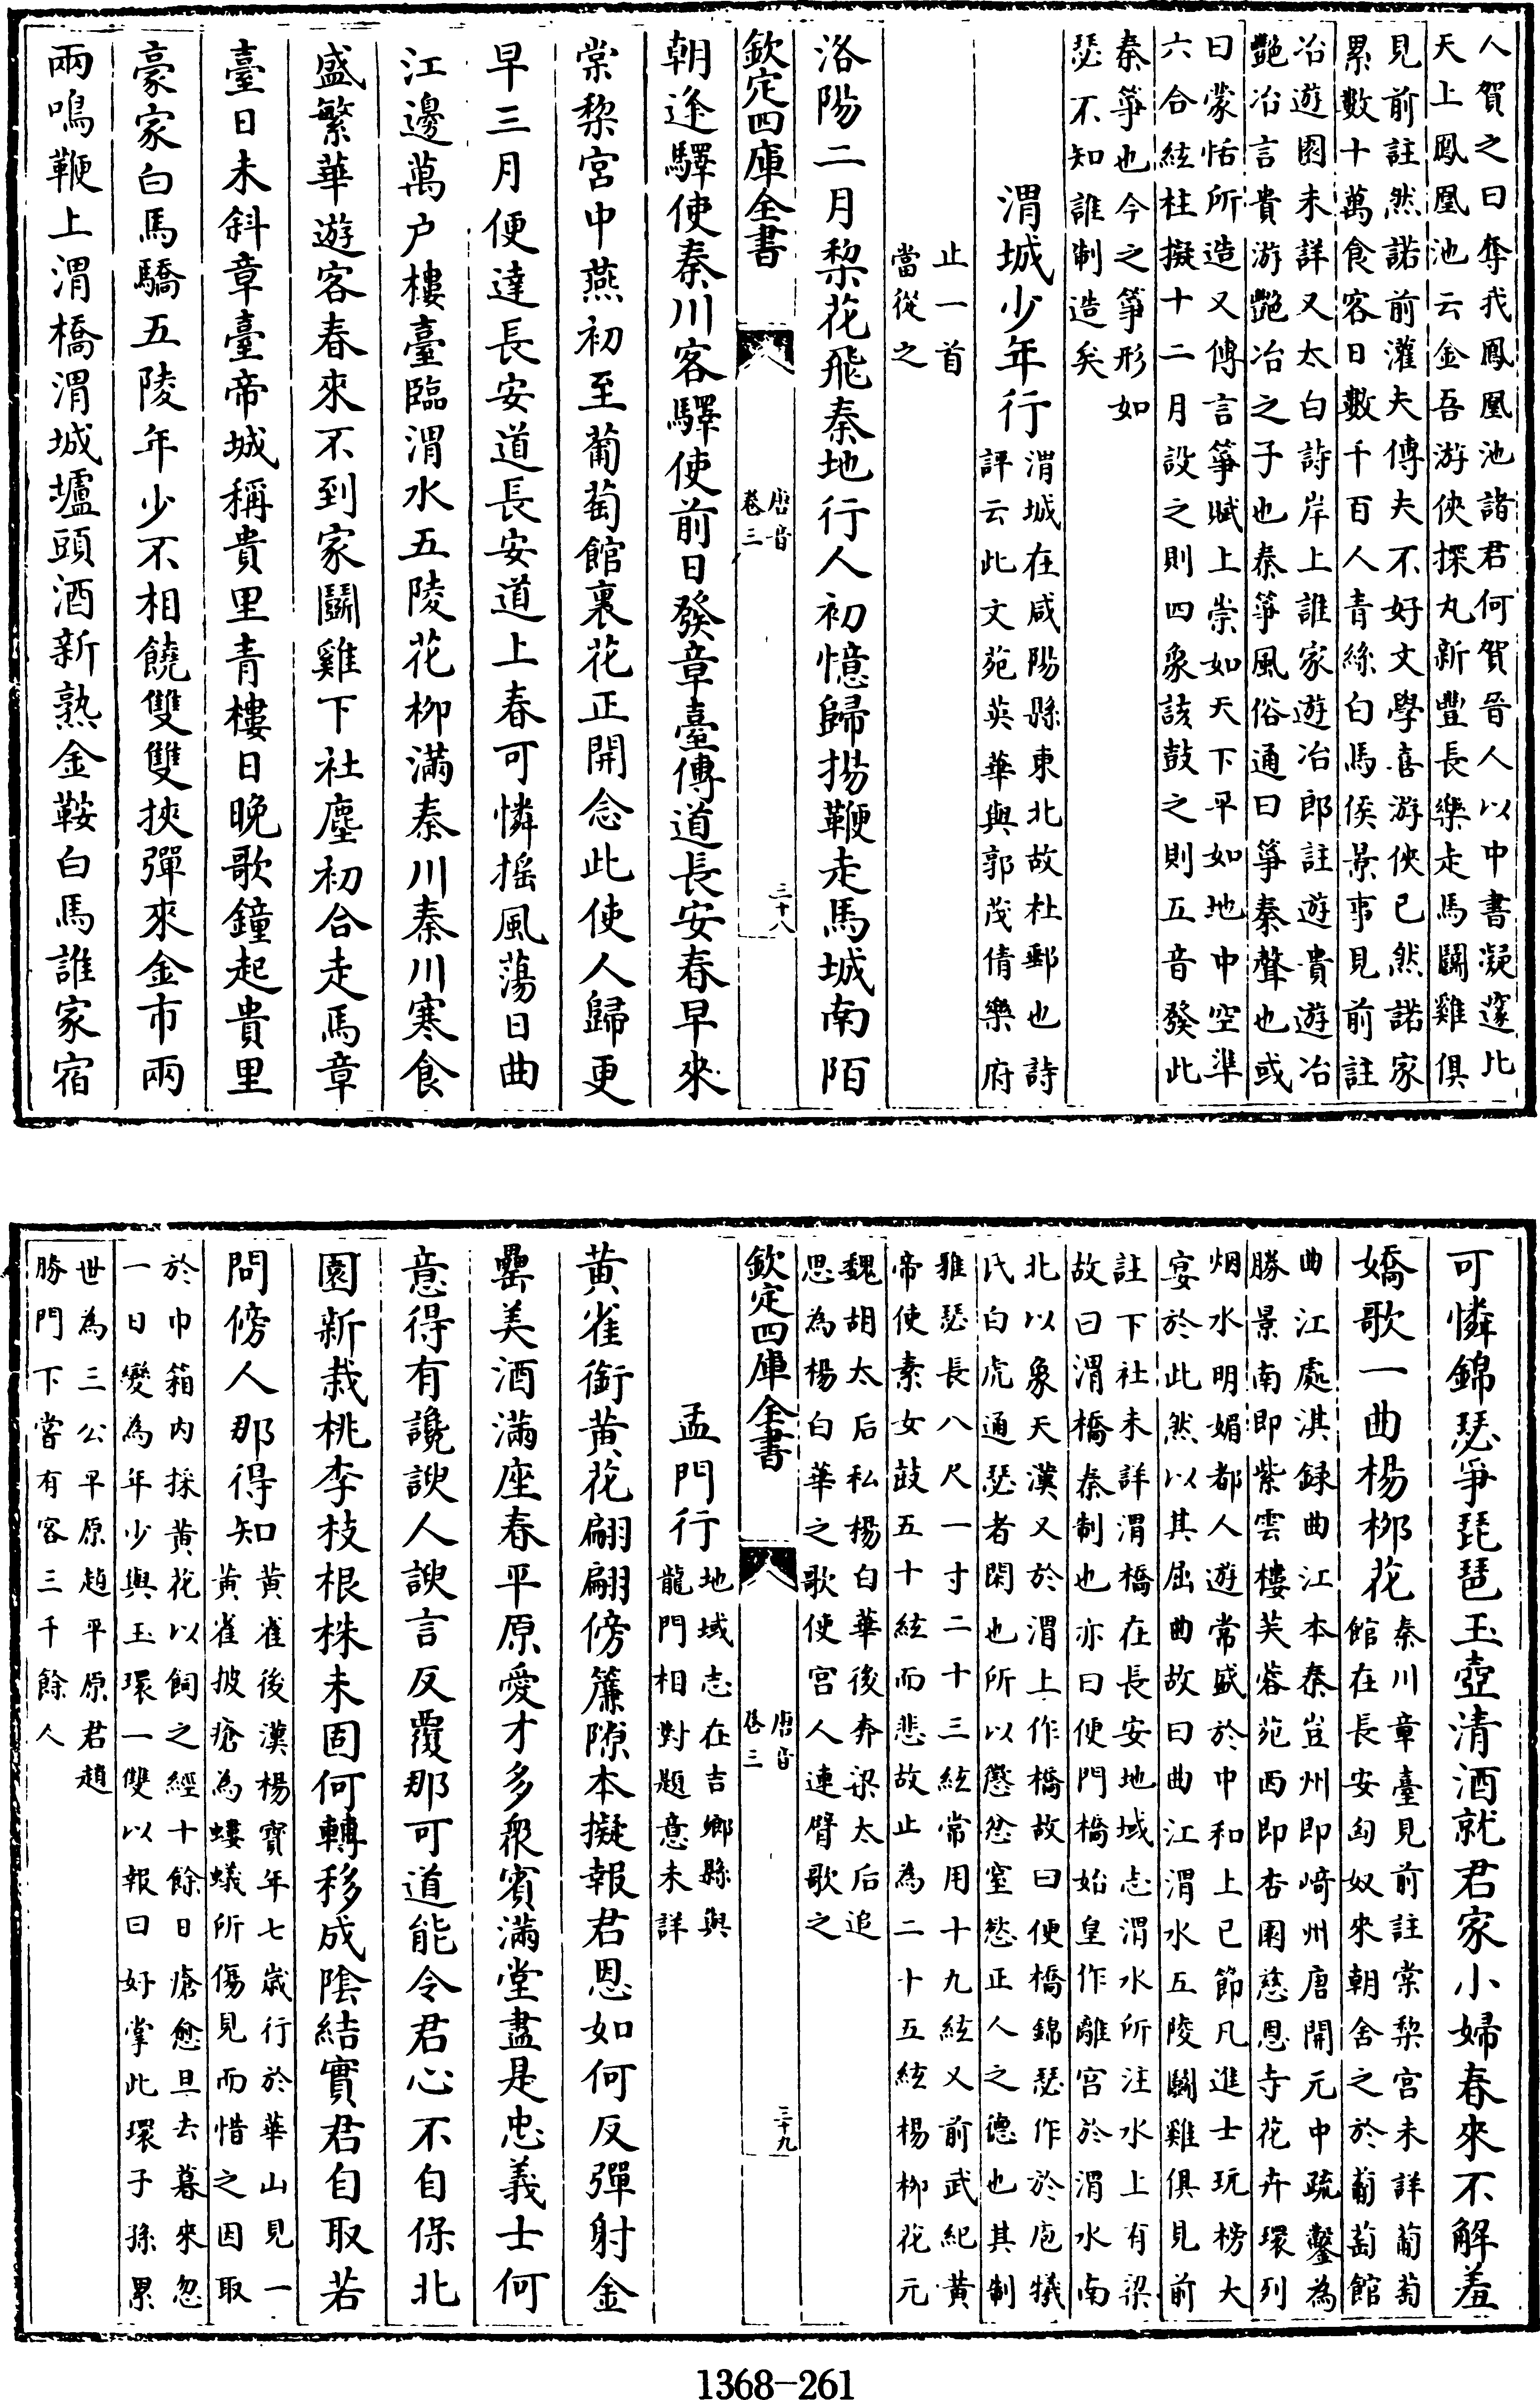 人賀之曰奪我鳳凰池諸君何賀晉人以中書凝邃比
天上鳳凰池云金吾游俠探丸新豐長樂走馬鬭雞俱
見前註然諾前灌夫傳夫不好文學喜游俠已然諾家
累數十萬食客日數千百人青絲白馬侯景事見前註
冶遊園未詳又太白詩岸上誰家遊冶郎註遊貴遊冶
艶冶言貴游艶冶之子也秦箏風俗通曰箏秦聲也或
曰蒙恬所造又傅言箏賦上崇如天下平如地中空準
六合絃柱擬十二月設之則四象該鼓之則五音發此
秦箏也今之箏形如
瑟不知誰制造矣
渭城少年行
渭城在咸陽縣東北故杜郵也詩
評云此文苑英華與郭茂倩樂府
止一首
當從之
洛陽二月梨花飛秦地行人初憶歸揚鞭走馬城南陌
欽定四庫全書
唐音
卷三
三十八
朝逢驛使秦川客驛使前日發章臺傳道長安春早來
棠梨宮中燕初至葡萄館裏花正開念此使人歸更
早三月便達長安道長安道上春可憐摇風蕩日曲
江邊萬户樓臺臨渭水五陵花柳滿秦川秦川寒食
盛繁華遊客春來不到家鬭雞下社塵初合走馬章
臺日未斜章臺帝城稱貴里青樓日晚歌鐘起貴里
豪家白馬驕五陵年少不相饒雙雙挾彈來金市兩
兩鳴鞭上渭橋渭城壚頭酒新熟金鞍白馬誰家宿
可憐錦瑟爭琵琶玉壺清酒就君家小婦春來不解羞
嬌歌一曲楊柳花
秦川章臺見前註棠梨宮未詳葡萄
館在長安匈奴來朝舍之於葡萄館
曲江處淇録曲江本秦豈州即﨑州唐開元中疏鑿為
勝景南即紫雲樓芙蓉苑西即杏園慈恩寺花卉環列
烟水明媚都人遊常盛於中和上巳節凡進士玩榜大
宴於此然以其屈曲故曰曲江渭水五陵鬭雞俱見前
註下社未詳渭橋在長安地域志渭水所注水上有梁
故曰渭橋秦制也亦曰便門橋始皇作離宮於渭水南
北以象天漢又於渭上作橋故曰便橋錦瑟作於庖犧
氏白虎通瑟者閑也所以懲忿窒慾正人之德也其制
雅瑟長八尺一寸二十三絃常用十九絃又前武紀黄
帝使素女鼓五十絃而悲故止為二十五絃楊柳花元
魏胡太后私楊白華後奔梁太后追
思為楊白華之歌使宮人連臂歌之
欽定四庫全書
唐音
卷三
三十九
孟門行
地域志在吉鄉縣與
龍門相對題意未詳
黄雀銜黄花翩翩傍簾隙本擬報君恩如何反彈射金
罍美酒滿座春平原愛才多衆賓滿堂盡是忠義士何
意得有讒諛人諛言反覆那可道能令君心不自保北
園新栽桃李枝根株未固何轉移成陰結實君自取若
問傍人那得知
黄雀後漢楊寳年七歳行於華山見一
黄雀披瘡為螻蟻所傷見而惜之因取
於巾箱内採黄花以飼之經十餘日瘡愈旦去暮來忽
一日變為年少與玉環一雙以報曰好掌此環子孫累
世為三公平原趙平原君趙
勝門下嘗有客三千餘人
1368-261